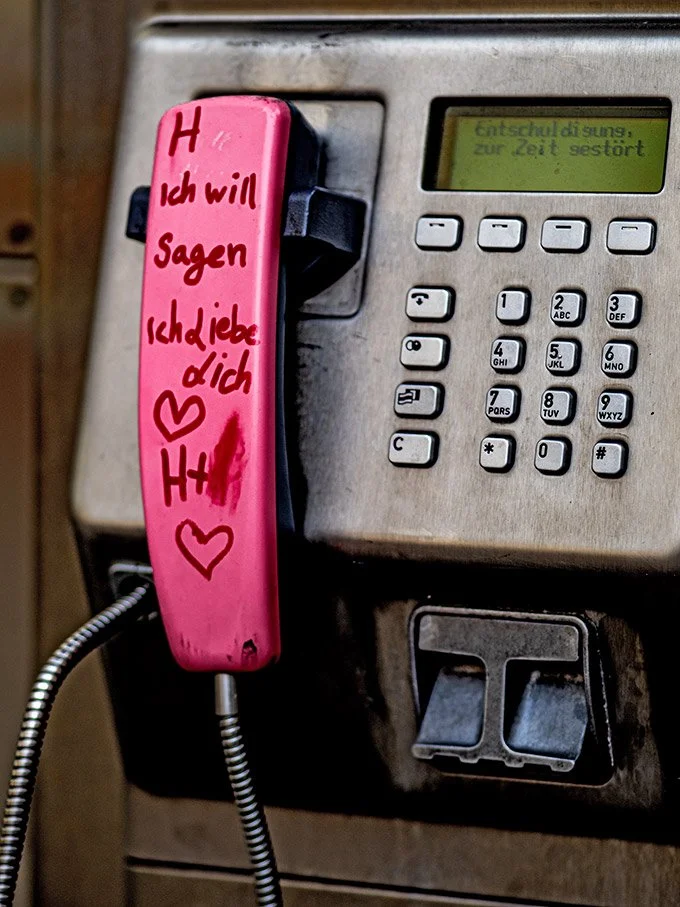 H
Ich will
Sagen
ich Liebe
dich
H+
Entschuldigung,
zur Zeit gestört
1
2
ABC
3
DEF
4
GHI
5
JKL
6
MNO
7
PQRS
8
TUV
9
WXYZ
C
*
0
#